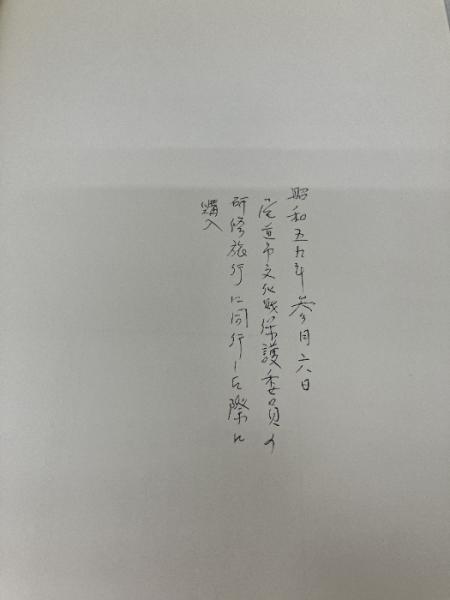 昭和五九年参月二八日
道市文化財保護委員の
研修旅行に同行した際に
購入